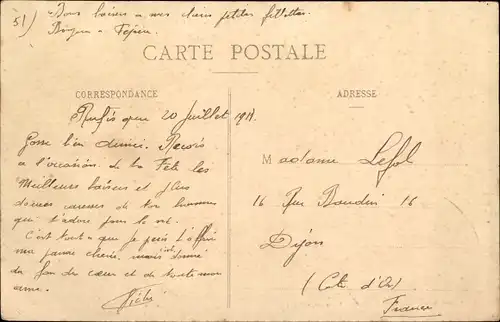 51) Bons baisers a mes chères petites fillettes.
CARTE POSTALE
CORRESPONDANCE
Rufisque 20 Juillet 191
Reçois
a l'occasion de ta Fête les
Meilleurs baisers et plus
douces caresses de ton homme
qui t'adore pour la vie.
C'est tout ce que je puis t'offrir
ma pauvre chérie, mais donné
du fon du cœur et de toute mon
ame.
ADRESSE
Madame Lefol
16 Rue Baudin 16
Dijon
(Cote d'Or)
France